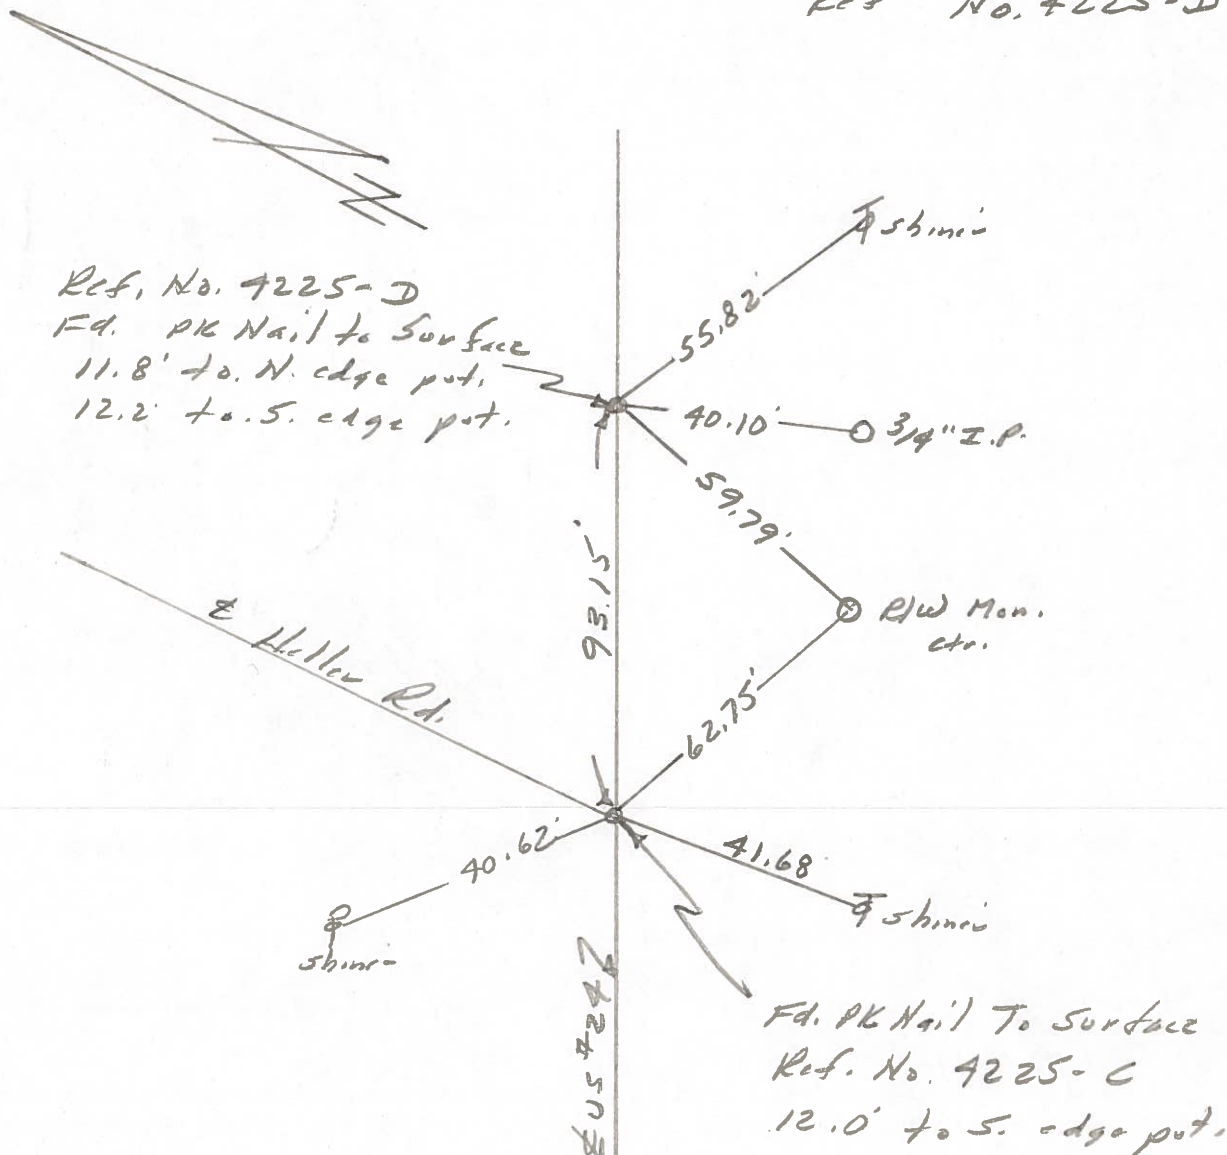 Ref No. 4225-D
shiner
55.82'
Ref. No. 4225-D
Fd. PK Nail to Surface
11.8' to N. edge pvt.
12.2' to S. edge pvt.
40.10'
3/4" I.P.
59.79'
93.15'
R/W Mon.
ctr.
℄ Heller Rd.
62.75'
40.62'
41.68
shiner
shiner
℄ US #24
Fd. PK Nail To Surface
Ref. No. 4225-C
12.0' to S. edge pvt.